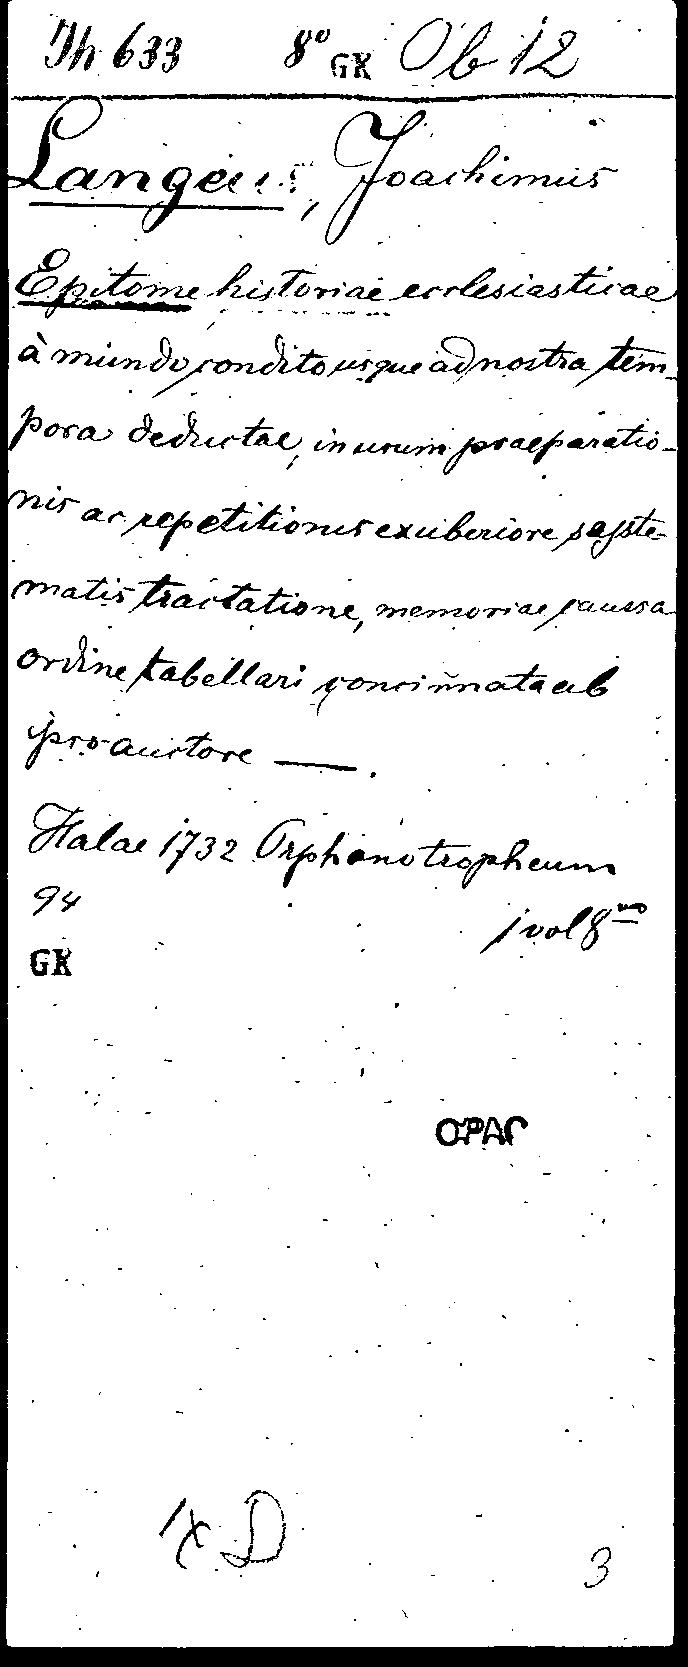 Th 633 8° GK Ob 12
Langeus, Joachimus
Epitome historiae ecclesiasticae
à mundo condito usque ad nostra tem-
pora deductae, in usum praeparatio-
nis ac repetitionis exuberiore syste-
matis tractatione, memoriae caussa
ordine tabellari concinnata ab
ipso auctore —.
Halae 1732 Orphanotropheum
94
1 vol 8vo
GK
OPAC
1x D
3